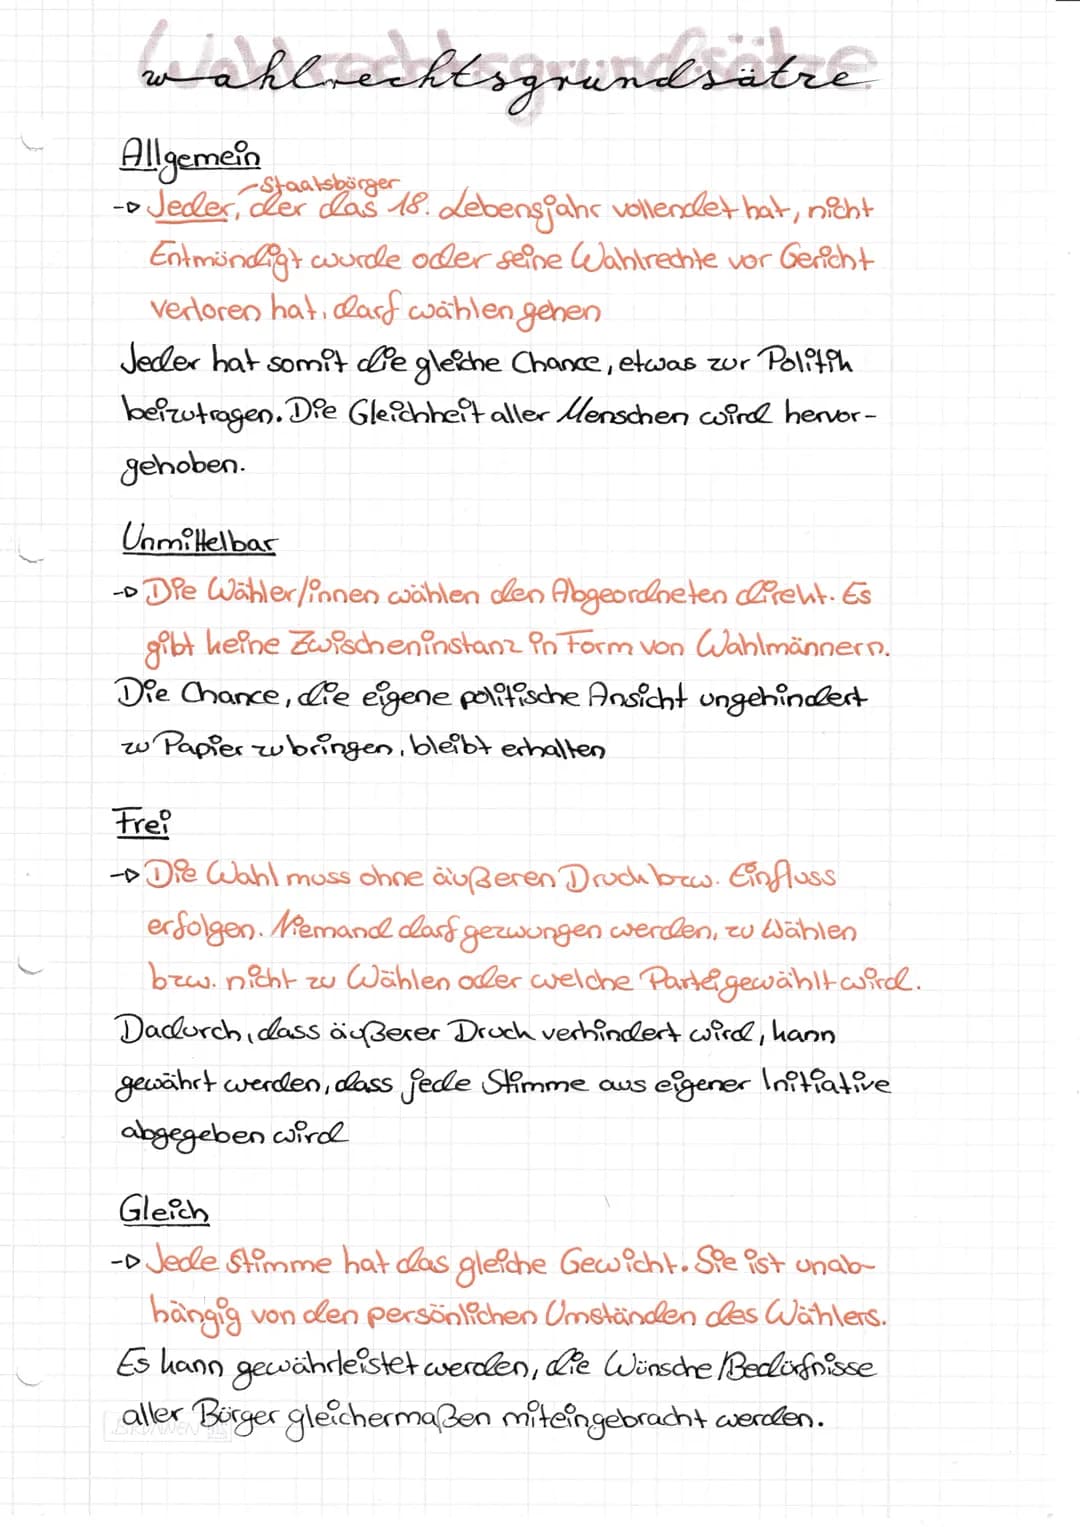 Wahlrechtsgrundsätze
wahlrechtsgrundsätze
Allgemein
-Staatsbürger
-> Jeder, der das 18. Lebensjahr vollendet hat, nicht
Entmündigt wurde oder seine Wahlrechte vor Gericht
verloren hat, darf wählen gehen
Jeder hat somit die gleiche Chance, etwas zur Politik
beizutragen. Die Gleichheit aller Menschen wird hervor-
gehoben.
Unmittelbar
-> Die Wähler/innen wählen den Abgeordneten direkt. Es
gibt keine Zwischeninstanz in Form von Wahlmännern.
Die Chance, die eigene politische Ansicht ungehindert
zu Papier zu bringen, bleibt erhalten
Frei
-> Die Wahl muss ohne äußeren Druck bzw. Einfluss
erfolgen. Niemand darf gezwungen werden, zu Wählen
bzw. nicht zu Wählen oder welche Partei gewählt wird.
Dadurch, dass äußerer Druck verhindert wird, kann
gewährt werden, dass jede Stimme aus eigener Initiative
abgegeben wird
Gleich
-> Jede Stimme hat das gleiche Gewicht. Sie ist unab-
hängig von den persönlichen Umständen des Wählers.
Es kann gewährleistet werden, die Wünsche/Bedürfnisse
aller Bürger gleichermaßen miteingebracht werden.
BRUNNEN